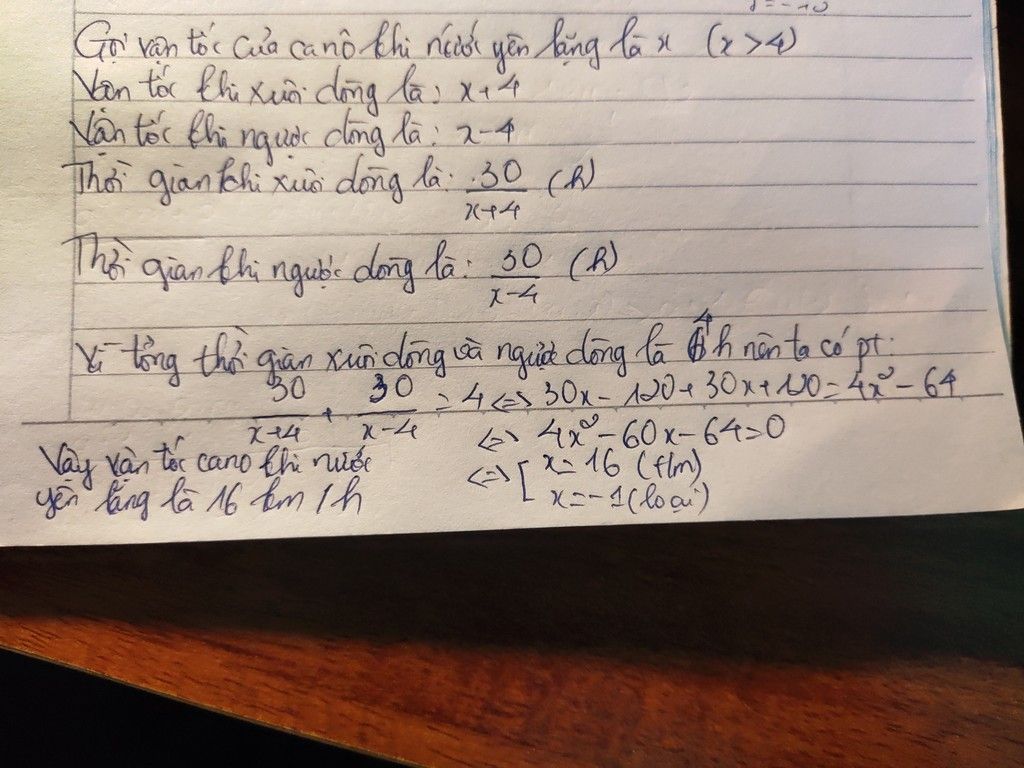 Gọi vận tốc của canô khi nước yên lặng là x (x > 4)
Vận tốc khi xuôi dòng là: x+4
Vận tốc khi ngược dòng là: x-4
Thời gian khi xuôi dòng là: 30/(x+4) (h)
Thời gian khi ngược dòng là: 30/(x-4) (h)
Vì tổng thời gian xuôi dòng và ngược dòng là 4h nên ta có pt:
30/(x+4) + 30/(x-4) = 4 <=> 30x - 120 + 30x + 120 = 4x² - 64
<=> 4x² - 60x - 64 = 0
<=> [ x = 16 (t/m)
x = -1 (loại)
Vậy vận tốc cano khi nước
yên lặng là 16 km/h